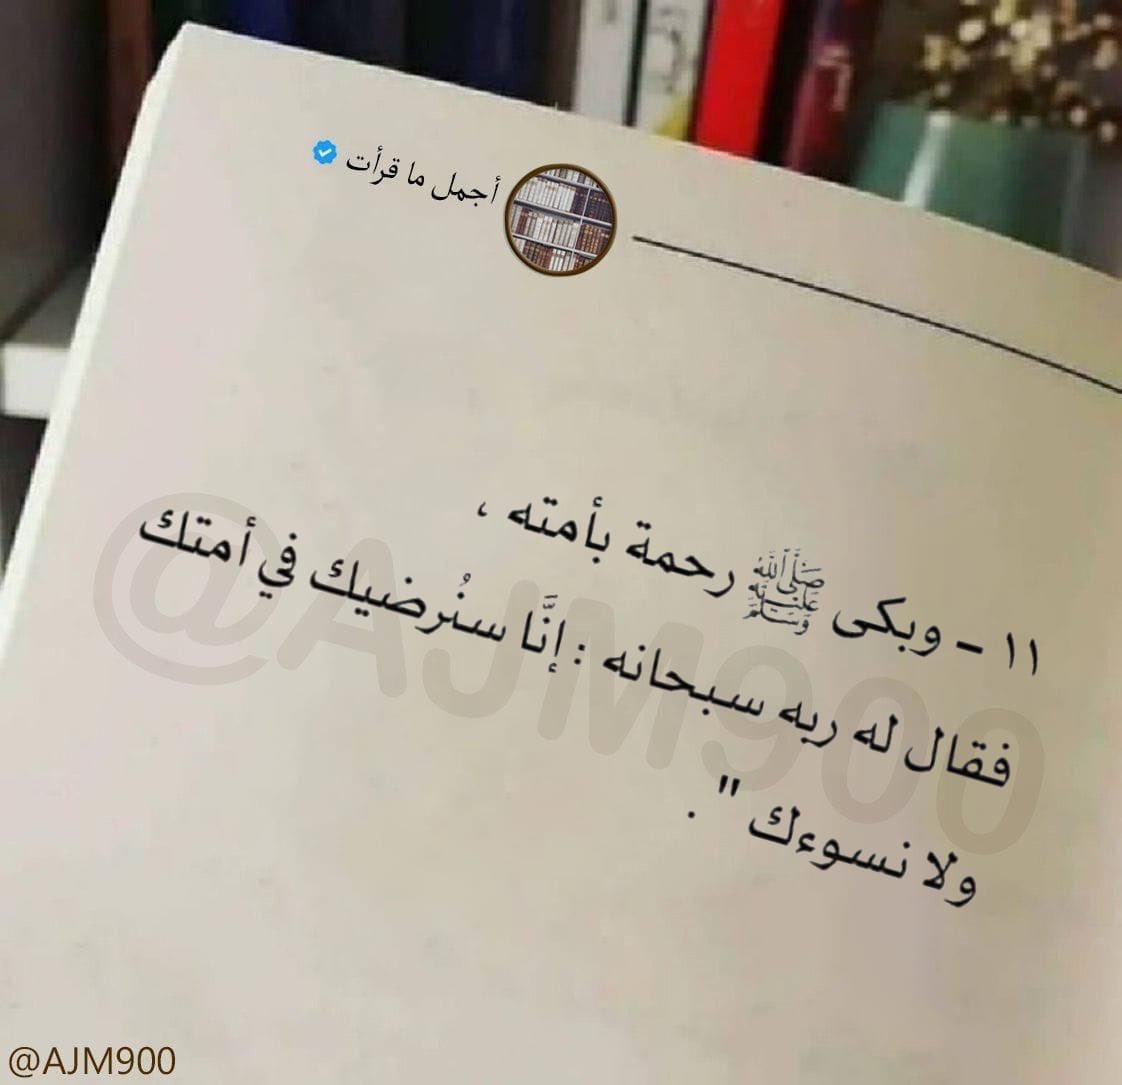 أجمل ما قرأت
١١ - وبكى ﷺ رحمة بأمته ،
فقال له ربه سبحانه : إنَّا سنُرضيك في أمتك
ولا نسوءك " .
@AJM900
@AJM900